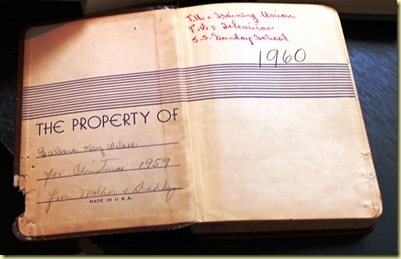 THE PROPERTY OF
Barbara Kay
for Christmas 1959
from Mother & Daddy
MADE IN U.S.A.
T.U. = Training Union
T.V. = Television
S.S. = Sunday School
1960